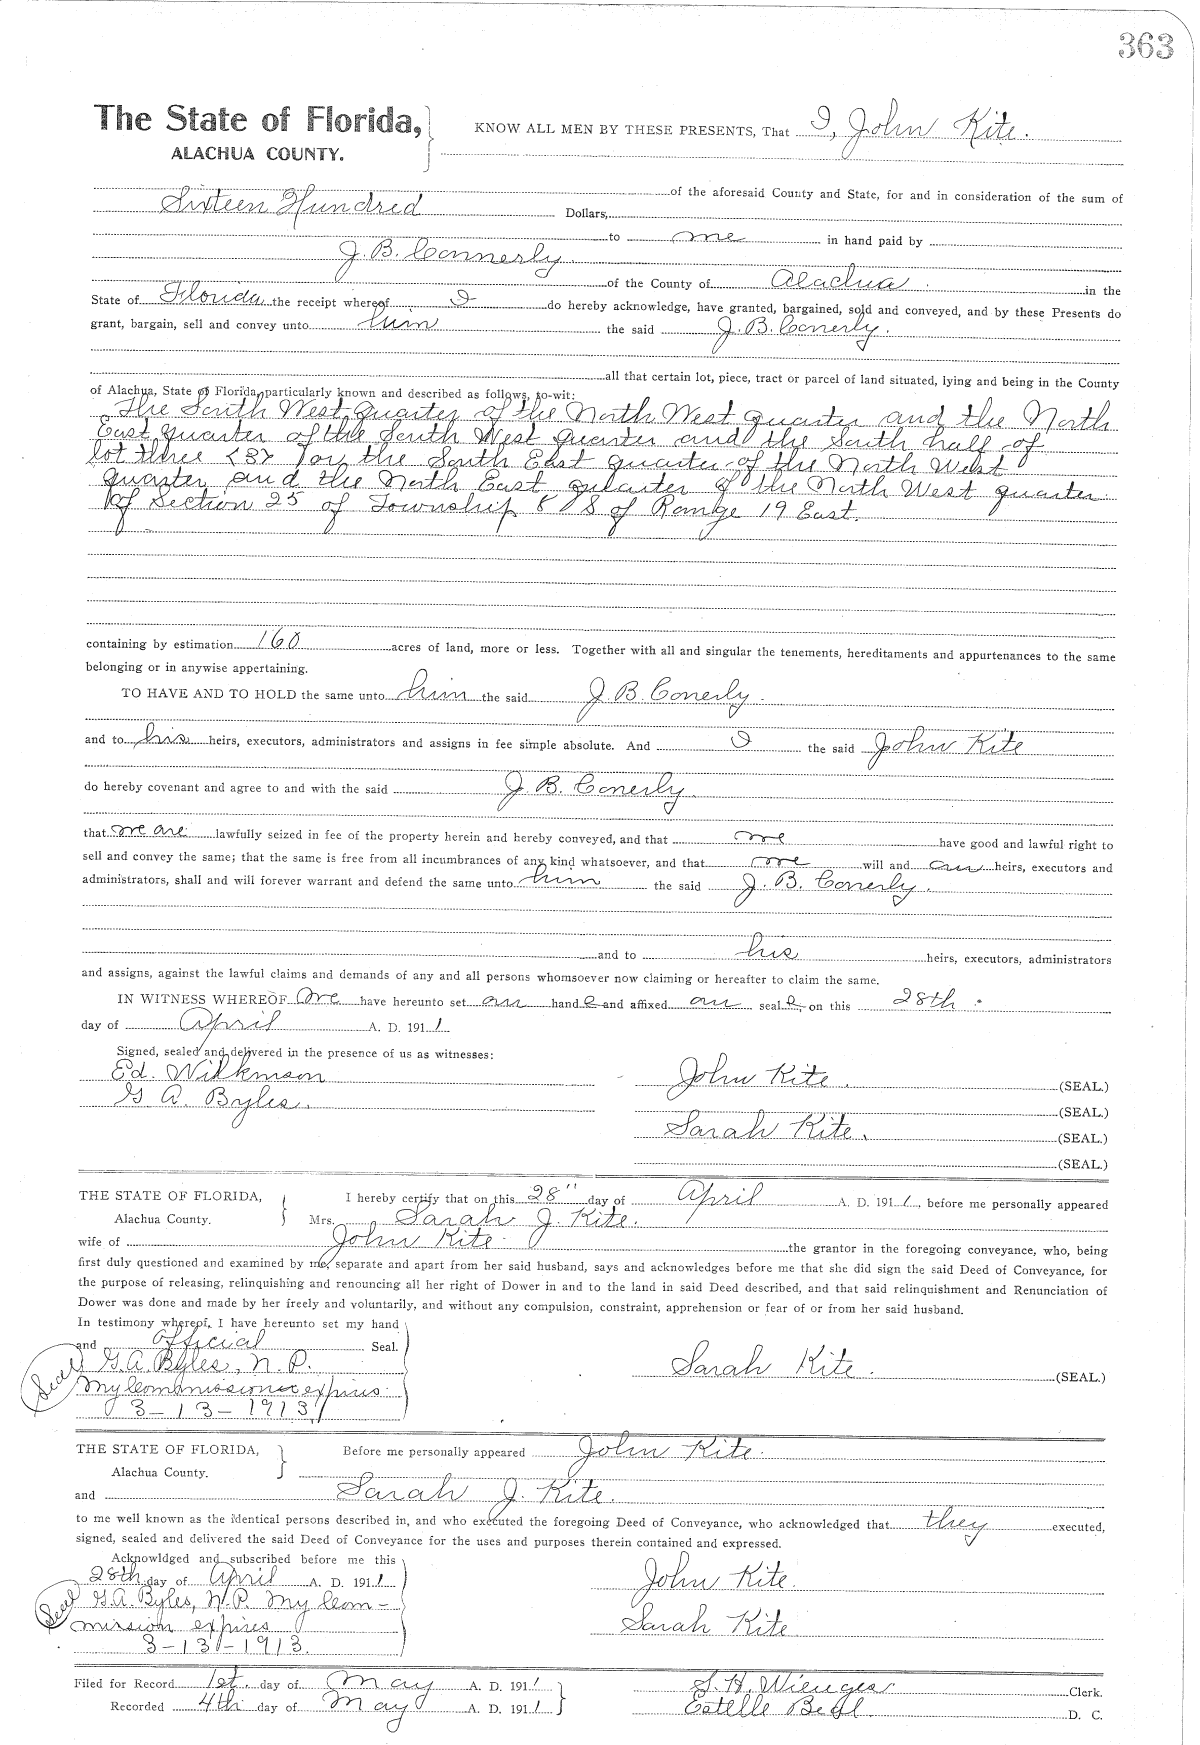 363
The State of Florida,
ALACHUA COUNTY.
KNOW ALL MEN BY THESE PRESENTS, That I, John Kite.
of the aforesaid County and State, for and in consideration of the sum of
Sixteen Hundred Dollars,
to me in hand paid by
J. B. Connerly.
of the County of Alachua. in the
State of Florida the receipt whereof I do hereby acknowledge, have granted, bargained, sold and conveyed, and by these Presents do
grant, bargain, sell and convey unto him the said J. B. Conerly.
all that certain lot, piece, tract or parcel of land situated, lying and being in the County
of Alachua, State of Florida, particularly known and described as follows, to-wit:
The South West quarter of the North West quarter and the North
East quarter of the South West quarter and the South half of
lot three <3> or the South East quarter of the North West
quarter and the North East quarter of the North West quarter
of Section 25 of Township 8 S of Range 19 East.
containing by estimation 160 acres of land, more or less. Together with all and singular the tenements, hereditaments and appurtenances to the same
belonging or in anywise appertaining.
TO HAVE AND TO HOLD the same unto him the said J. B. Conerly.
and to his heirs, executors, administrators and assigns in fee simple absolute. And I the said John Kite
do hereby covenant and agree to and with the said J. B. Conerly.
that we are lawfully seized in fee of the property herein and hereby conveyed, and that we have good and lawful right to
sell and convey the same; that the same is free from all incumbrances of any kind whatsoever, and that we will and our heirs, executors and
administrators, shall and will forever warrant and defend the same unto him the said J. B. Conerly.
and to his heirs, executors, administrators
and assigns, against the lawful claims and demands of any and all persons whomsoever now claiming or hereafter to claim the same.
IN WITNESS WHEREOF We have hereunto set our hand s and affixed our seal s, on this 28th.
day of April A. D. 1911
Signed, sealed and delivered in the presence of us as witnesses:
Ed. Wilkinson
G. A. Byles.
John Kite. (SEAL.)
(SEAL.)
Sarah Kite. (SEAL.)
(SEAL.)
THE STATE OF FLORIDA,
Alachua County.
I hereby certify that on this 28" day of April A. D. 1911, before me personally appeared
Mrs. Sarah J. Kite.
wife of John Kite. the grantor in the foregoing conveyance, who, being
first duly questioned and examined by me, separate and apart from her said husband, says and acknowledges before me that she did sign the said Deed of Conveyance, for
the purpose of releasing, relinquishing and renouncing all her right of Dower in and to the land in said Deed described, and that said relinquishment and Renunciation of
Dower was done and made by her freely and voluntarily, and without any compulsion, constraint, apprehension or fear of or from her said husband.
In testimony whereof, I have hereunto set my hand
and official Seal.
Seal G. A. Byles, N. P.
My Commission expires
3-13-1913
Sarah Kite. (SEAL.)
THE STATE OF FLORIDA,
Alachua County.
Before me personally appeared John Kite.
and Sarah J. Kite.
to me well known as the identical persons described in, and who executed the foregoing Deed of Conveyance, who acknowledged that they executed,
signed, sealed and delivered the said Deed of Conveyance for the uses and purposes therein contained and expressed.
Acknowldged and subscribed before me this
28th day of April A. D. 1911
Seal G. A. Byles, N. P. My Com-
mission expires
3-13-1913.
John Kite.
Sarah Kite
Filed for Record 1st. day of May A. D. 1911
Recorded 4th day of May A. D. 1911
S. H. Wienges Clerk.
Estelle D. C.